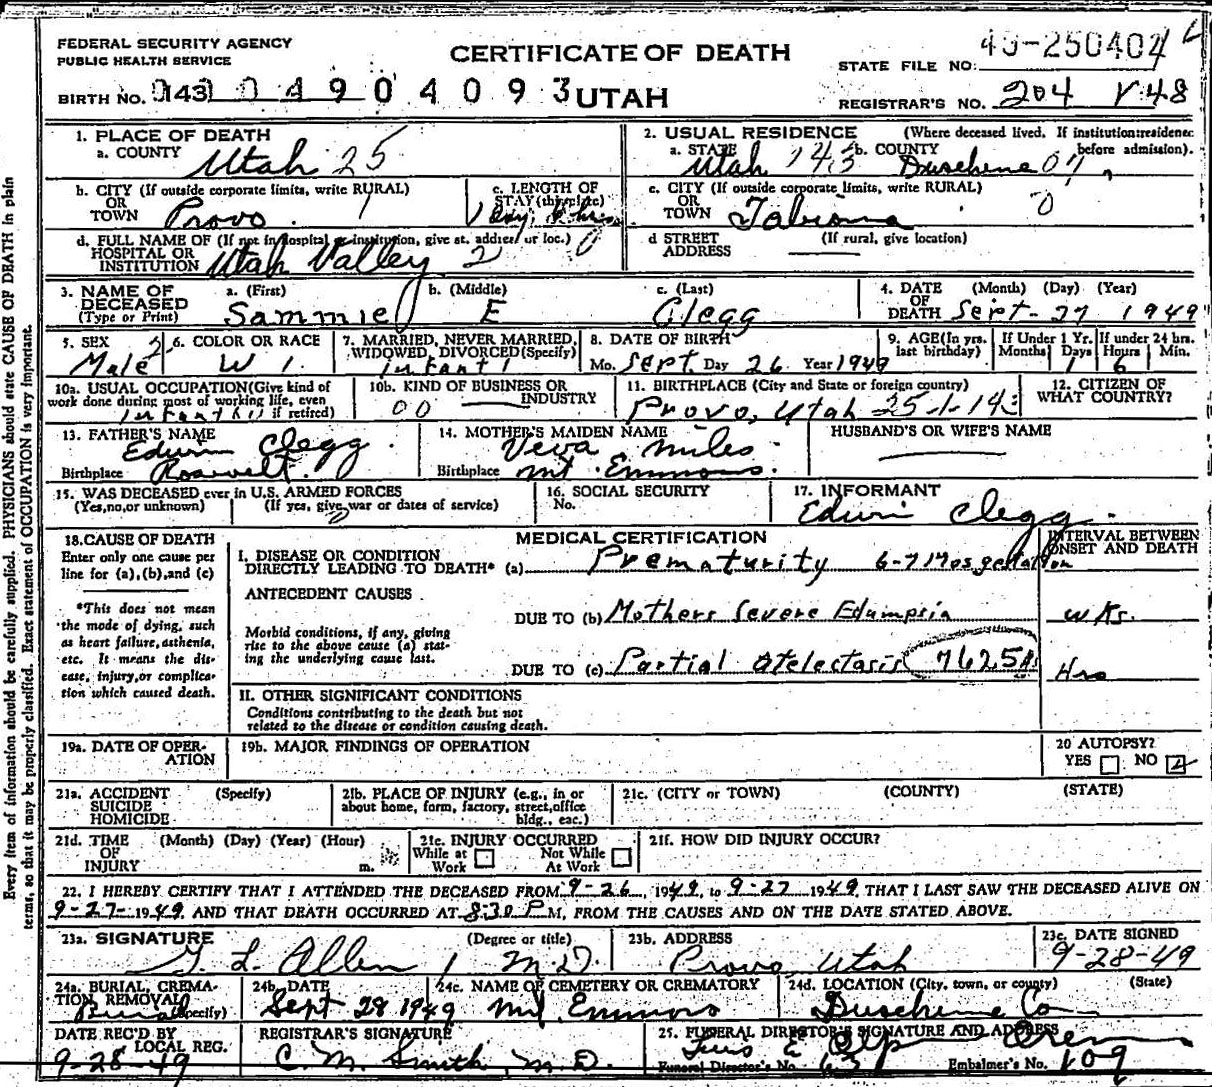 FEDERAL SECURITY AGENCY
PUBLIC HEALTH SERVICE
CERTIFICATE OF DEATH
STATE FILE NO: 49-250404
BIRTH NO. 143 0 4 9 0 4 0 9 3 UTAH
REGISTRAR'S NO. 204 V48
1. PLACE OF DEATH
a. COUNTY Utah 25
2. USUAL RESIDENCE (Where deceased lived. If institution: residence before admission).
a. STATE Utah 143 b. COUNTY Duschene 07
b. CITY (If outside corporate limits, write RURAL)
OR TOWN Provo 1
c. LENGTH OF STAY (this place) 1 Day, 6 hrs
c. CITY (If outside corporate limits, write RURAL)
OR TOWN Tabiona 0
d. FULL NAME OF (If not in hospital or institution, give st. address or loc.)
HOSPITAL OR INSTITUTION Utah Valley 2 0
d STREET ADDRESS (If rural, give location)
3. NAME OF DECEASED (Type or Print)
a. (First) Sammie b. (Middle) E c. (Last) Clegg
4. DATE OF DEATH (Month) (Day) (Year) Sept-27 1949
5. SEX Male 2
6. COLOR OR RACE W 1
7. MARRIED, NEVER MARRIED, WIDOWED, DIVORCED (Specify) infant 1
8. DATE OF BIRTH Mo. Sept. Day 26 Year 1949
9. AGE (In yrs. last birthday) If Under 1 Yr. Months Days 1 If under 24 hrs. Hours 6 Min.
10a. USUAL OCCUPATION (Give kind of work done during most of working life, even if retired) infant
10b. KIND OF BUSINESS OR INDUSTRY 00
11. BIRTHPLACE (City and State or foreign country) Provo, Utah 25-1-143
12. CITIZEN OF WHAT COUNTRY?
13. FATHER'S NAME Edwin Clegg
Birthplace Roosevelt.
14. MOTHER'S MAIDEN NAME Veva Miles
Birthplace Mt. Emmons.
HUSBAND'S OR WIFE'S NAME
15. WAS DECEASED ever in U.S. ARMED FORCES
(Yes, no, or unknown) (If yes, give war or dates of service)
16. SOCIAL SECURITY No.
17. INFORMANT
Edwin Clegg.
18. CAUSE OF DEATH
Enter only one cause per line for (a), (b), and (c)
*This does not mean the mode of dying, such as heart failure, asthenia, etc. It means the disease, injury, or complication which caused death.
MEDICAL CERTIFICATION
INTERVAL BETWEEN ONSET AND DEATH
I. DISEASE OR CONDITION DIRECTLY LEADING TO DEATH* (a) Prematurity 6-7 Mos gestation
ANTECEDENT CAUSES
DUE TO (b) Mothers Severe Eclampsia wks.
Morbid conditions, if any, giving rise to the above cause (a) stating the underlying cause last.
DUE TO (c) Partial Atelectasis 7625 Hrs
II. OTHER SIGNIFICANT CONDITIONS
Conditions contributing to the death but not related to the disease or condition causing death.
19a. DATE OF OPERATION
19b. MAJOR FINDINGS OF OPERATION
20 AUTOPSY?
YES NO
21a. ACCIDENT SUICIDE HOMICIDE (Specify)
21b. PLACE OF INJURY (e.g., in or about home, form, factory, street, office bldg., eac.)
21c. (CITY or TOWN) (COUNTY) (STATE)
21d. TIME OF INJURY (Month) (Day) (Year) (Hour) m.
21e. INJURY OCCURRED
While at Work Not While At Work
21f. HOW DID INJURY OCCUR?
22. I HEREBY CERTIFY THAT I ATTENDED THE DECEASED FROM 9-26, 1949, to 9-27 1949 THAT I LAST SAW THE DECEASED ALIVE ON
9-27- 1949 AND THAT DEATH OCCURRED AT 8:30 P M, FROM THE CAUSES AND ON THE DATE STATED ABOVE.
23a. SIGNATURE (Degree or title)
G. L. Allen M.D.
23b. ADDRESS
Provo, Utah
23c. DATE SIGNED
9-28-49
24a. BURIAL, CREMATION, REMOVAL (Specify) Burial
24b. DATE Sept 28 1949
24c. NAME OF CEMETERY OR CREMATORY Mt Emmons
24d. LOCATION (City, town, or county) (State)
Duschene Co
DATE REC'D BY LOCAL REG.
9-28-49
REGISTRAR'S SIGNATURE
C. M. Smith, M.D.
25. FUNERAL DIRECTOR'S SIGNATURE AND ADDRESS
E Orem
Funeral Director's No. Embalmer's No. 109
Every item of information should be carefully supplied. PHYSICIANS should state CAUSE OF DEATH in plain
terms, so that it may be properly classified. Exact statement of OCCUPATION is very important.